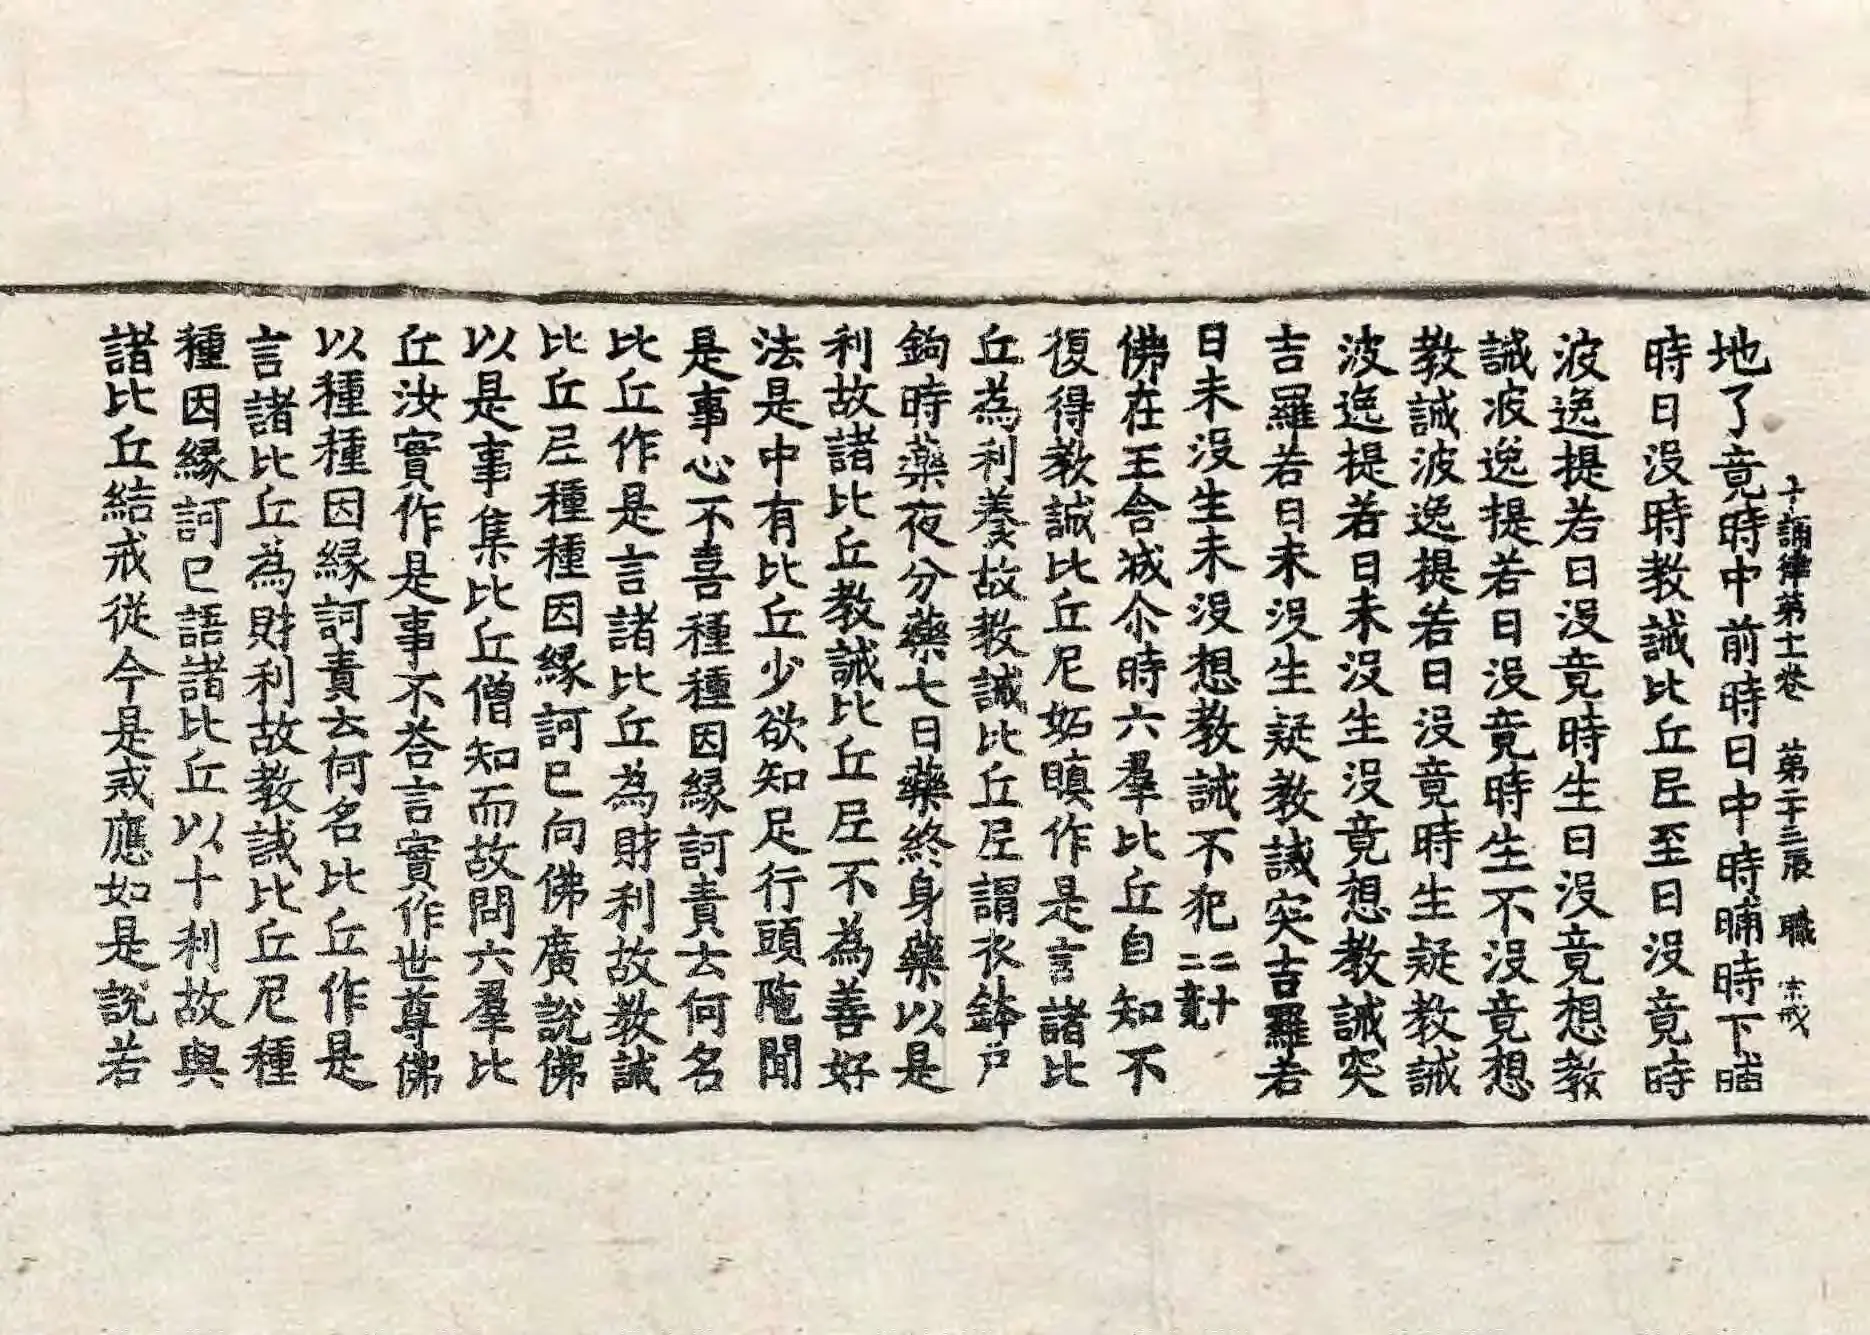 十誦律第十二卷　第二十三張　職　宗戒
地了竟時中前時日中時晡時下晡
時日没時教誡比丘尼至日没竟時
波逸提若日没竟時生日没竟想教
誡波逸提若日没竟時生不没竟想
教誡波逸提若日没竟時生疑教誡
波逸提若日未没生没竟想教誡突
吉羅若日未没生疑教誡突吉羅若
日未没生未没想教誡不犯二十二竟
佛在王舍城尒時六羣比丘自知不
復得教誡比丘尼妬瞋作是言諸比
丘為利養故教誡比丘尼謂衣鉢户
鉤時藥夜分藥七日藥終身藥以是
利故諸比丘教誡比丘尼不為善好
法是中有比丘少欲知足行頭陁聞
是事心不喜種種因緣訶責云何名
比丘作是言諸比丘為財利故教誡
比丘尼種種因緣訶已向佛廣說佛
以是事集比丘僧知而故問六羣比
丘汝實作是事不荅言實作世尊佛
以種種因緣訶責云何名比丘作是
言諸比丘為財利故教誡比丘尼種
種因緣訶已語諸比丘以十利故與
諸比丘結戒從今是戒應如是說若